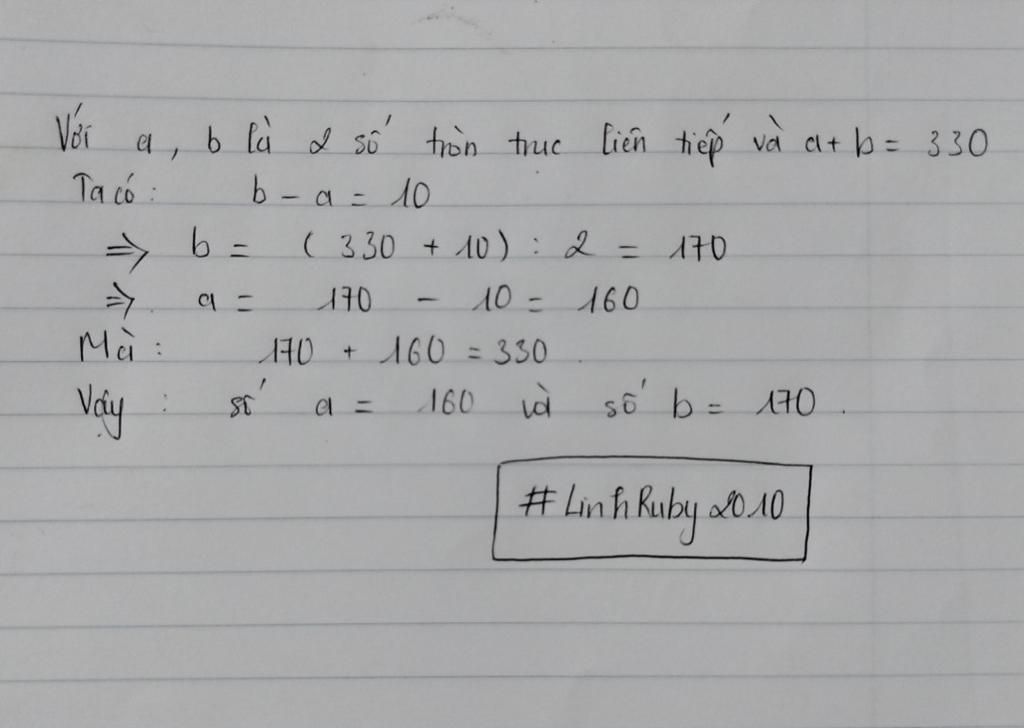 Với a, b là 2 số tròn trục liên tiếp và a + b = 330
Ta có: b - a = 10
=> b = ( 330 + 10) : 2 = 170
=> a = 170 - 10 = 160
Mà: 170 + 160 = 330
Vậy: số a = 160 và số b = 170.
#LinhRuby2010